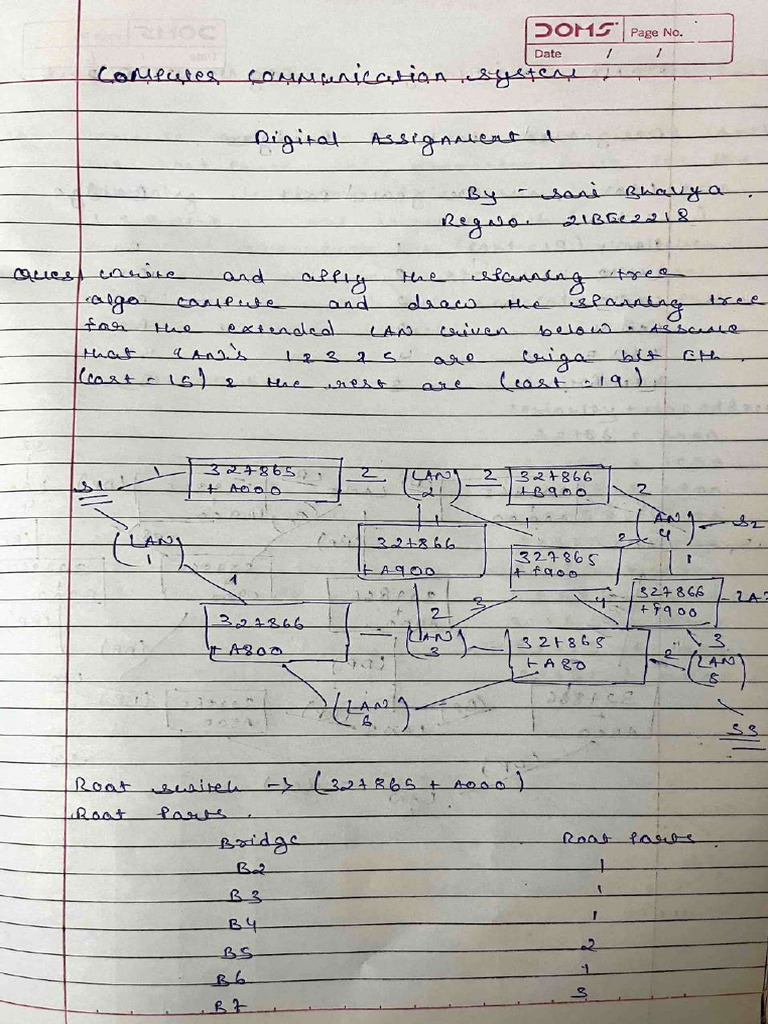 DOMS Page No.
Date / /
Computer communication system
Digital Assignment 1
By - Sani Bhavya.
Reg No. 21BEC2218
Ques) write and apply the spanning tree
algo compute and draw the spanning tree
for the extended LAN given below. Assume
that LAN's 1 2 3 & 5 are Giga bit Eth.
(cost - 15) & the rest are (cost - 19)
S1 1 327865 + A000 2 (LAN 2) 2 327866 + B900 2
(LAN 4) S2
(LAN 1) 327866 + A900 1 327865 + F900 2 1
1 2 3 4 327866 + F900
327866 + A800 (LAN 3) 327865 + A80 2 3 (LAN 5)
(LAN 6)
S3
Root switch -> (327865 + A000)
Root Ports.
Bridge Root Ports
B2 1
B3 1
B4 1
B5 2
B6 1
B7 3